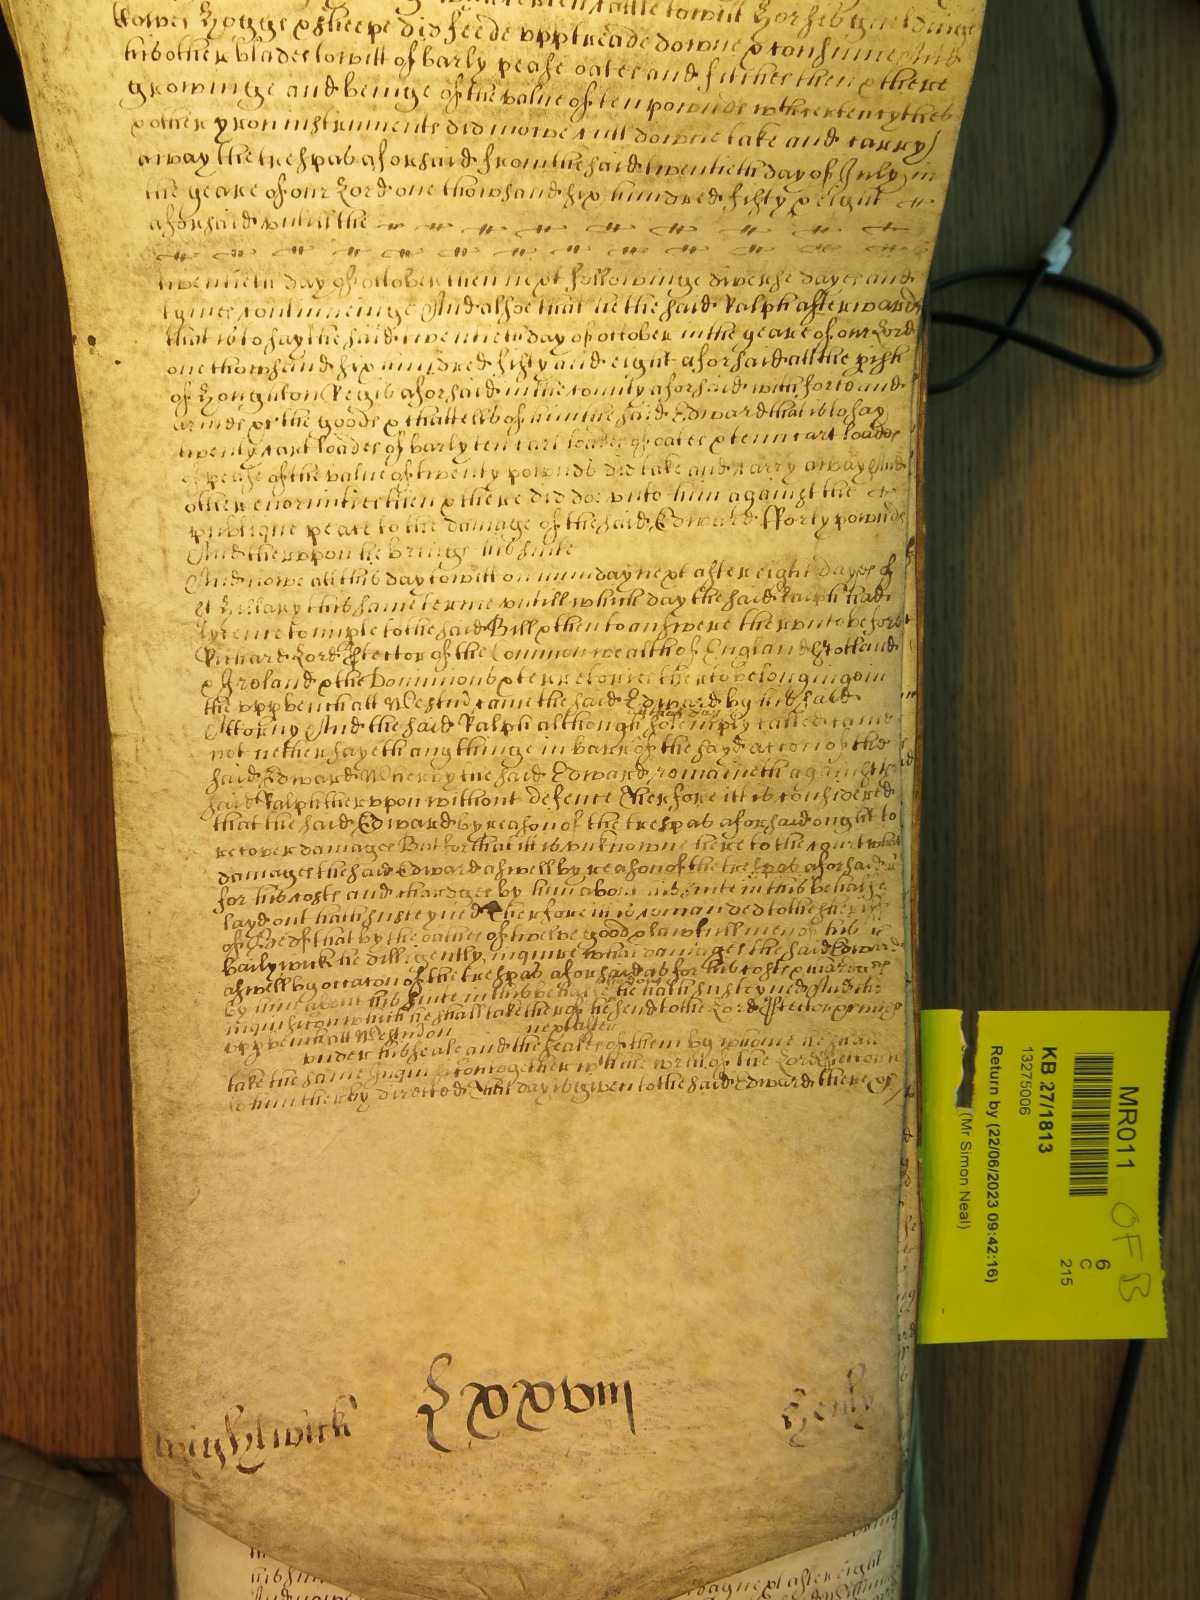 Cowes Hogge & sheepe did feede upp treade downe & consume And
his other blades to witt of barly pease oates and fitches then & there
groweinge and beinge of the value of ten pownds with
& other yron instruments did mowe cutt downe take and carry
away the trespas aforsaid from the said twentieth day of July in
the yeare of our Lord one thowsand six hundred fifty & eight
aforsaid untill the
twentieth day of October then next followinge diverse dayes and
tymes continueinge And alsoe that he the said Ralph afterwards
that is to say the said twentieth day of october in the yeare of our Lord
one thowsand six hundred fifty and eight aforsaid att the pish
of Houghton Regis aforsaid in the county aforsaid with force and
armes &c the goods & chattells of him the said Edward that is to say
twenty cart loades of barly ten cart loades of oates & tenn cart loades
of pease of the value of twenty pownds did take and carry away And
other enormities then & there did doe unto him against the
publique peace to the damage of the said Edward Forty pownds
And therupon he brings his suite
And nowe att this day to witt on munday next after eight dayes of
St Hillary this same terme untill which day the said Ralph had
lycence to imple to the said Bill & then to answere therunto before
Richard Lord Ptector of the Commonwealth of England Scotland
& Ireland & the Dominions & terretories therto belonginge in
the upp bench att Westm came the said Edward by his said
Attorny And the said Ralph although solempnly called came
att that day
not nether sayeth any thinge in barr of the sayd accon of the
said Edward Wherby the said Edward remaineth against the
said Ralph therupon without defence Therfore itt is considered
that the said Edward by reason of the trespas aforsaid ought to
recover damages But for that itt is unknowne here to the court what
damages the said Edward aswell by reason of the trespas aforsaid as
for his costs and chardges by him about his suite in this behalfe
layd out hath susteyned Therfore itt is comanded to the sheriffe
of Bedf that by the oathes of twelve good & lawfull men of his
Bailywick he dilligently inquire what damages the said Edward
aswell by occacon of the trespas aforsaid as for his costs & chardges
by him about his suite in this behalfe he hath susteyned And the
inquisicon which he shall take therof he send to the Lord Ptector
upp bench att Westm on next after
under his seale and the seales of them by whome he shall
take the same Inquisicon together with the writt of the Lord Ptector
to him therby directed That day is given to the said Edward there &c
Wightwick
Lxxxviij
Henly
MR011
OFB
6
C
215
KB 27/1813
13275006
Return by (22/06/2023 09:42:16)
(Mr Simon Neal)
next after eight